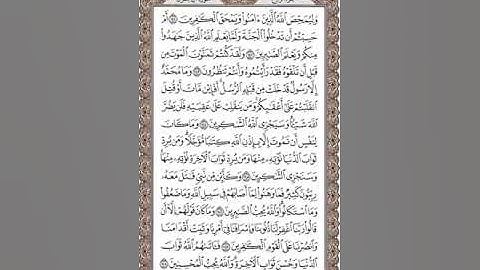 وَلِيُمَحِّصَ ٱللَّهُ ٱلَّذِينَ ءَامَنُوا۟ وَيَمْحَقَ ٱلْكَٰفِرِينَ أَمْ
حَسِبْتُمْ أَن تَدْخُلُوا۟ ٱلْجَنَّةَ وَلَمَّا يَعْلَمِ ٱللَّهُ ٱلَّذِينَ جَٰهَدُوا۟
مِنكُمْ وَيَعْلَمَ ٱلصَّٰبِرِينَ وَلَقَدْ كُنتُمْ تَمَنَّوْنَ ٱلْمَوْتَ مِن
قَبْلِ أَن تَلْقَوْهُ فَقَدْ رَأَيْتُمُوهُ وَأَنتُمْ تَنظُرُونَ وَمَا مُحَمَّدٌ
إِلَّا رَسُولٌ قَدْ خَلَتْ مِن قَبْلِهِ ٱلرُّسُلُ أَفَإِي۟ن مَّاتَ أَوْ قُتِلَ
ٱنقَلَبْتُمْ عَلَىٰٓ أَعْقَٰبِكُمْ وَمَن يَنقَلِبْ عَلَىٰ عَقِبَيْهِ فَلَن يَضُرَّ
ٱللَّهَ شَيْـًٔا وَسَيَجْزِى ٱللَّهُ ٱلشَّٰكِرِينَ وَمَا كَانَ
لِنَفْسٍ أَن تَمُوتَ إِلَّا بِإِذْنِ ٱللَّهِ كِتَٰبًا مُّؤَجَّلًا وَمَن يُرِدْ
ثَوَابَ ٱلدُّنْيَا نُؤْتِهِۦ مِنْهَا وَمَن يُرِدْ ثَوَابَ ٱلْءَاخِرَةِ نُؤْتِهِۦ مِنْهَا
وَسَنَجْزِى ٱلشَّٰكِرِينَ وَكَأَيِّن مِّن نَّبِىٍّ قَٰتَلَ مَعَهُۥ
رِبِّيُّونَ كَثِيرٌ فَمَا وَهَنُوا۟ لِمَآ أَصَابَهُمْ فِى سَبِيلِ ٱللَّهِ وَمَا ضَعُفُوا۟
وَمَا ٱسْتَكَانُوا۟ وَٱللَّهُ يُحِبُّ ٱلصَّٰبِرِينَ وَمَا كَانَ قَوْلَهُمْ إِلَّآ أَن
قَالُوا۟ رَبَّنَا ٱغْفِرْ لَنَا ذُنُوبَنَا وَإِسْرَافَنَا فِىٓ أَمْرِنَا وَثَبِّتْ أَقْدَامَنَا
وَٱنصُرْنَا عَلَى ٱلْقَوْمِ ٱلْكَٰفِرِينَ فَـَٔاتَىٰهُمُ ٱللَّهُ ثَوَابَ
ٱلدُّنْيَا وَحُسْنَ ثَوَابِ ٱلْءَاخِرَةِ وَٱللَّهُ يُحِبُّ ٱلْمُحْسِنِينَ